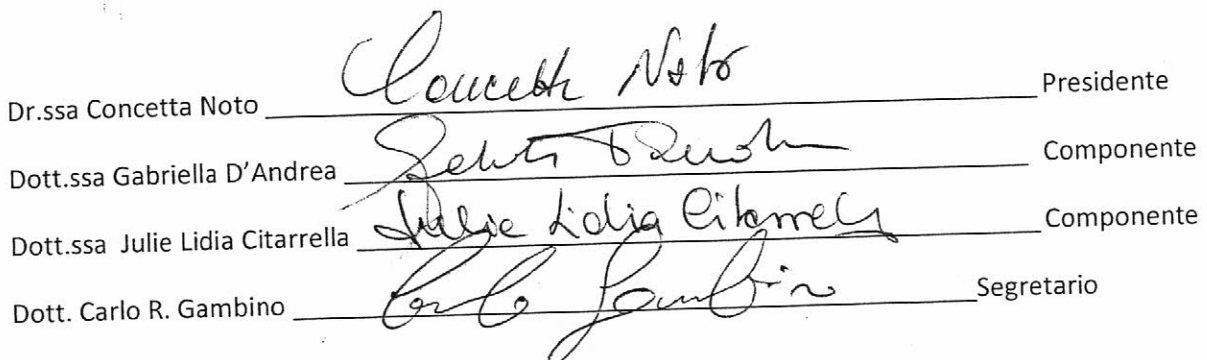 Dr.ssa Concetta Noto Concetta Noto Presidente
Dott.ssa Gabriella D'Andrea Componente
Dott.ssa Julie Lidia Citarrella Julie Lidia Citarrella Componente
Dott. Carlo R. Gambino Carlo Gambino Segretario